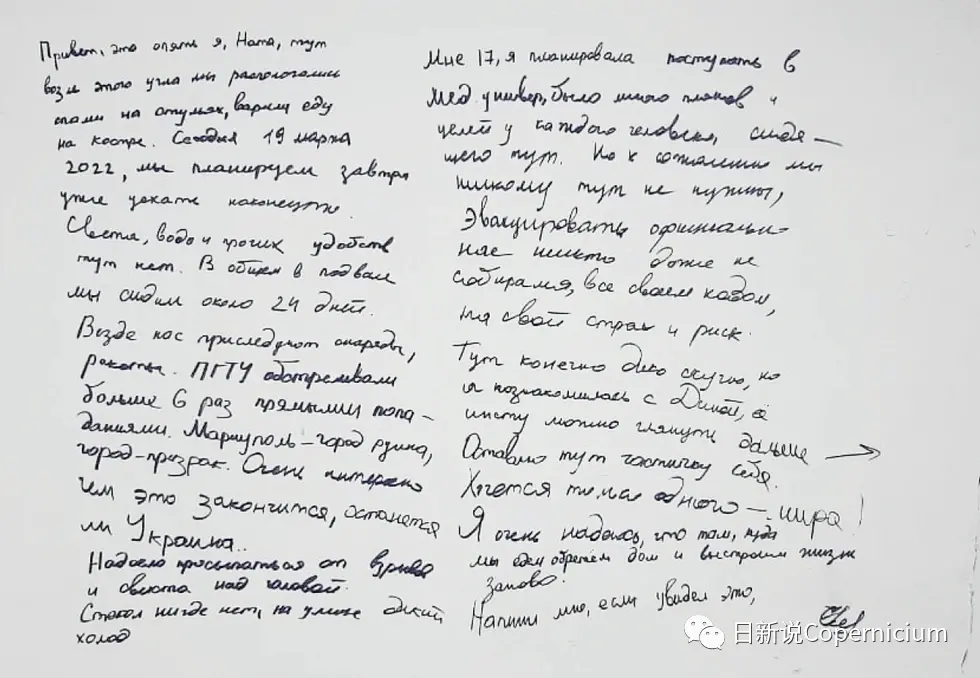 Привет, это опять я, Ната, тут
возле этого угла мы распологались
спали на стульях, варили еду
на костре. Сегодня 19 марта
2022, мы планируем завтра
уже уехать наконецто.
Света, воды и прочих удобств
тут нет. В общем в подвале
мы сидим около 24 дней.
Везде нас приследуют снаряды,
ракеты. ПГТУ обстреливали
больше 6 раз прямыми попа-
даниями. Мариуполь – город руина,
город-призрак. Очень интересно
чем это закончится, останется
ли Украина..
Надоело просыпаться от взрыва
и свиста над головой.
Стекол нигде нет, на улице дикий
холод
Мне 17, я планировала поступать в
мед универ, было много планов и
целей у каждого человека, сидя-
щего тут. Но к сожалению мы
никому тут не нужны,
Эвакуировать официально
нас никто даже не
собирался, все своем ходом,
на свой страх и риск.
Тут конечно дико скучно, но
я познакомилась с Диной, её
инсту можно глянуть дальше →
Оставлю тут частичку себя.
Хочется только одного – мира!
Я очень надеюсь, что там, куда
мы едем обретем дом и выстроим жизнь
заново.
Напиши мне, если увидел это,
日新说Copernicium